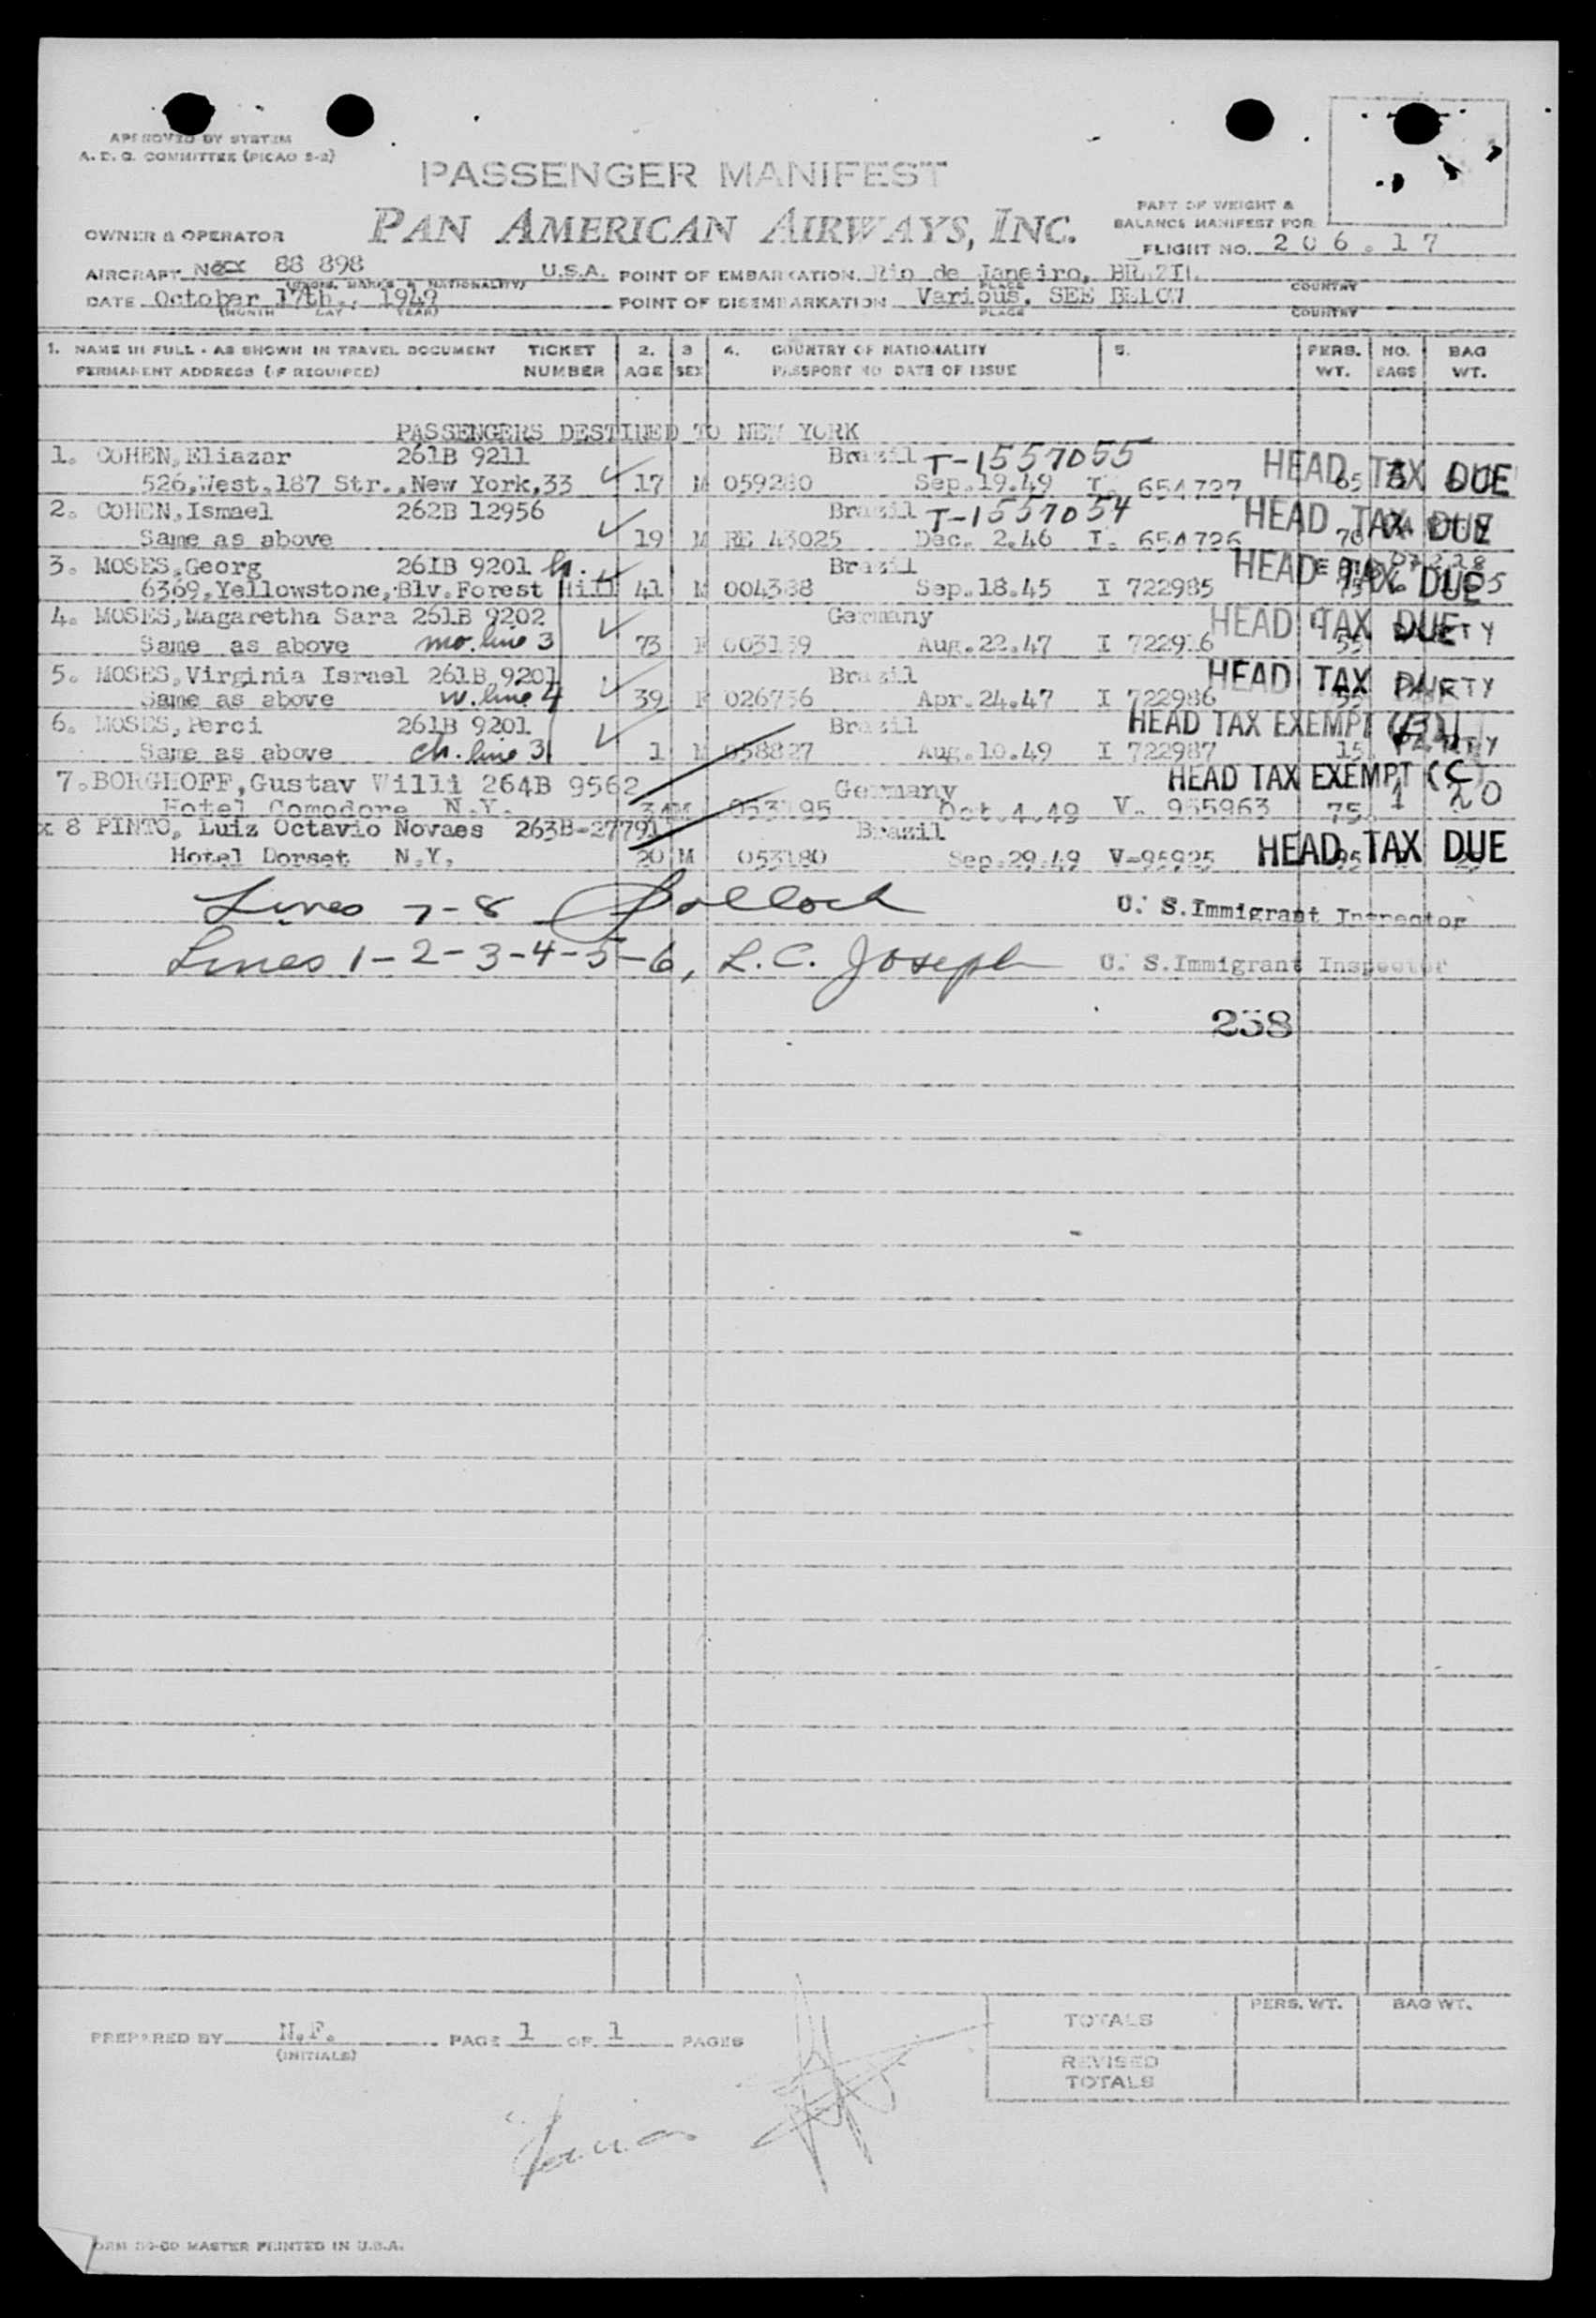 APPROVED BY SYSTEM
A. D. G. COMMITTEE (PICAO 2-2)
PASSENGER MANIFEST
PART OF WEIGHT &
OWNER & OPERATOR PAN AMERICAN AIRWAYS, INC. BALANCE MANIFEST FOR
FLIGHT NO. 206.17
AIRCRAFT 88 898 U.S.A. POINT OF EMBARKATION Rio de Janeiro, BRAZIL
(MARKS & NATIONALITY) PLACE COUNTRY
DATE October 17th., 1949 POINT OF DISEMBARKATION Various. SEE BELOW
(MONTH DAY YEAR) PLACE COUNTRY
1. NAME IN FULL - AS SHOWN IN TRAVEL DOCUMENT TICKET 2. 3 4. COUNTRY OF NATIONALITY 5. PERS. NO. BAG
PERMANENT ADDRESS (IF REQUIRED) NUMBER AGE SEX PASSPORT NO DATE OF ISSUE WT. BAGS WT.
PASSENGERS DESTINED TO NEW YORK
1. COHEN,Eliazar 261B 9211 Brazil T-1557055 HEAD TAX DUE
526,West.187 Str.,New York,33 17 M 059280 Sep.19.49 I. 654727 65
2. COHEN,Ismael 262B 12956 Brazil T-1557054 HEAD TAX DUE
Same as above 19 M RE 43025 Dec. 2.46 I. 654726 70
3. MOSES,Georg 261B 9201 h. Brazil HEAD TAX DUE
6369,Yellowstone,Blv.Forest Hill 41 M 004388 Sep.18.45 I 722985
4. MOSES,Magaretha Sara 261B 9202 Germany HEAD TAX DUE
Same as above mo. line 3 73 F 003159 Aug.22.47 I 722916 55
5. MOSES,Virginia Israel 261B 9201 Brazil HEAD TAX
Same as above w. line 4 39 F 026756 Apr.24.47 I 722986 55
6. MOSES,Perci 261B 9201 Brazil HEAD TAX EXEMPT
Same as above ch. line 3 1 M 058827 Aug.10.49 I 722987 15
7.BORGHOFF,Gustav Willi 264B 9562 Germany HEAD TAX EXEMPT (C)
Hotel Comodore N.Y. 34 M 053195 Oct.4.49 V. 955963 75 1 20
x 8 PINTO, Luiz Octavio Novaes 263B-27791 Brazil
Hotel Dorset N.Y. 20 M 053180 Sep.29.49 V-95925 HEAD TAX DUE
Lines 7-8 Pollock U. S.Immigrant Inspector
Lines 1-2-3-4-5-6, L.C. Joseph U. S.Immigrant Inspector
238
PREPARED BY N.F. PAGE 1 OF 1 PAGES
(INITIALS)
PERS. WT. BAG WT.
TOTALS
REVISED
TOTALS
MASTER PRINTED IN U.S.A.